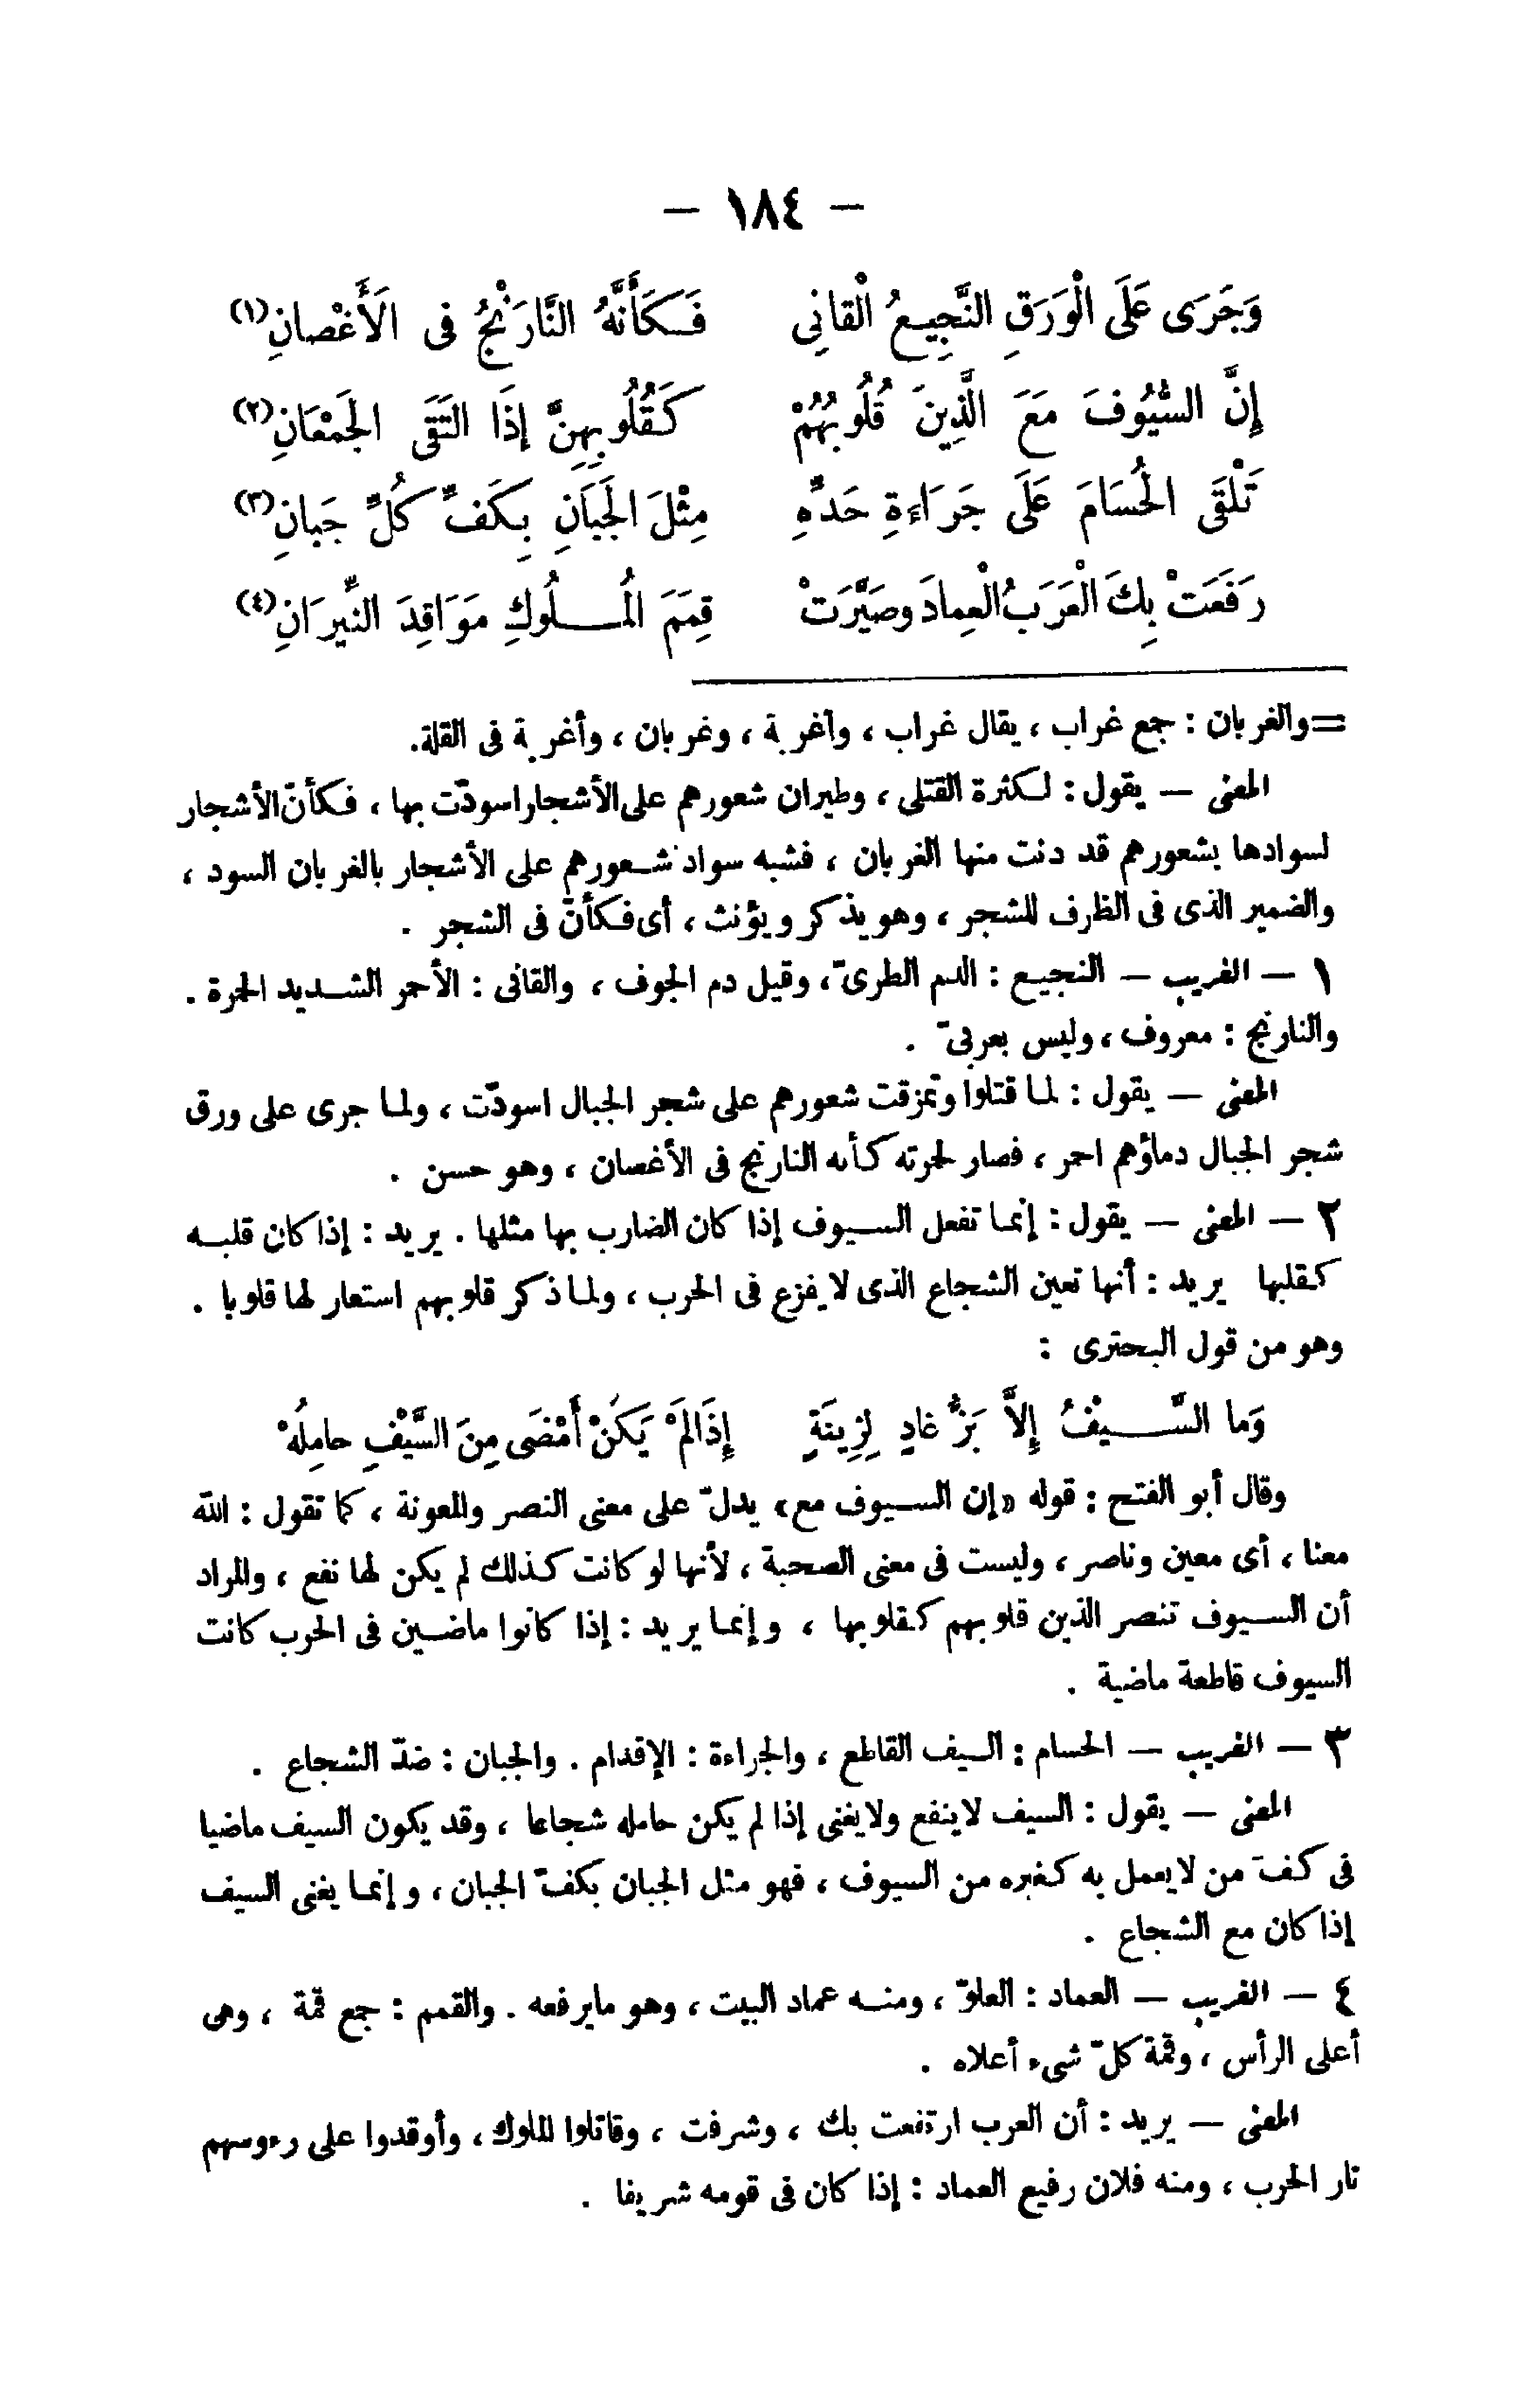 - ١٨٤ -
وَجَرَى عَلَى الْوَرَقِ النَّجِيعُ الْقانِى فَكَأَنَّهُ النَّارَنْجُ فى الأَغْصانِ(١)
إِنَّ السُّيُوفَ مَعَ الَّذِينَ قُلُوبُهُمْ كَقُلُوبِهِنَّ إِذَا الْتَقَى الجَمْعَانِ(٢)
تَلْقَى الحُسَامَ عَلَى جَرَاءَةِ حَدِّهِ مِثْلَ الجَبَانِ بِكَفِّ كُلِّ جَبانِ(٣)
رَفَعَتْ بِكَ الْعَرَبُ الْعِمادَ وصَيَّرَتْ قِمَمَ المُلُوكِ مَوَاقِدَ النِّيرَانِ(٤)
=والغربان : جمع غراب ، يقال غراب ، وأغربة ، وغربان ، وأغربة فى القلة.
المعنى — يقول : لكثرة القتلى ، وطيران شعورهم على الأشجار اسودّت بها ، فكأنّ الأشجار
لسوادها بشعورهم قد دنت منها الغربان ، فشبه سواد شعورهم على الأشجار بالغربان السود ،
والضمير الذى فى الظرف للشجر ، وهو يذكر ويؤنث ، أى فكأنّ فى الشجر .
١ — الغريب — النجيع : الدم الطرىّ ، وقيل دم الجوف ، والقانى : الأحمر الشديد الحمرة .
والنارنج : معروف ، وليس بعربىّ .
المعنى — يقول : لما قتلوا وتمزقت شعورهم على شجر الجبال اسودّت ، ولما جرى على ورق
شجر الجبال دماؤهم احمر ، فصار لحمرته كأنه النارنج فى الأغصان ، وهو حسن .
٢ — المعنى — يقول : إنما تفعل السيوف إذا كان الضارب بها مثلها . يريد : إذا كان قلبه
كقلبها يريد : أنها تعين الشجاع الذى لا يفزع فى الحرب ، ولما ذكر قلوبهم استعار لها قلوبا .
وهو من قول البحترى :
وَما السَّيْفُ إِلاَّ بَزُّ غادٍ لِزِينَةٍ إِذَا لَمْ يَكُنْ أَمْضَى مِنَ السَّيْفِ حامِلُهْ
وقال أبو الفتح : قوله «إن السيوف مع» يدلّ على معنى النصر والمعونة ، كما تقول : الله
معنا ، أى معين وناصر ، وليست فى معنى الصحبة ، لأنها لو كانت كذلك لم يكن لها نفع ، والمراد
أن السيوف تنصر الذين قلوبهم كقلوبها ، وإنما يريد : إذا كانوا ماضين فى الحرب كانت
السيوف قاطعة ماضية .
٣ — الغريب — الحسام : السيف القاطع ، والجراءة : الإقدام . والجبان : ضدّ الشجاع .
المعنى — يقول : السيف لاينفع ولايغنى إذا لم يكن حامله شجاعا ، وقد يكون السيف ماضيا
فى كفّ من لايعمل به كغيره من السيوف ، فهو مثل الجبان بكفّ الجبان ، وإنما يغنى السيف
إذا كان مع الشجاع .
٤ — الغريب — العماد : العلوّ ، ومنه عماد البيت ، وهو مايرفعه . والقمم : جمع قمة ، وهى
أعلى الرأس ، وقمة كلّ شىء أعلاه .
المعنى — يريد : أن العرب ارتفعت بك ، وشرفت ، وقاتلوا الملوك ، وأوقدوا على رءوسهم
نار الحرب ، ومنه فلان رفيع العماد : إذا كان فى قومه شريفا .